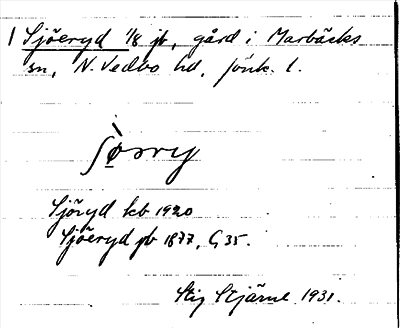 1 Sjöeryd 1/8 jb, gård i Marbäcks
sn, N. Vedbo hd, Jönk. l.
Sjöryd kb 1920
Sjöeryd jb 1877, G 35.
Stig Stjärne 1931.